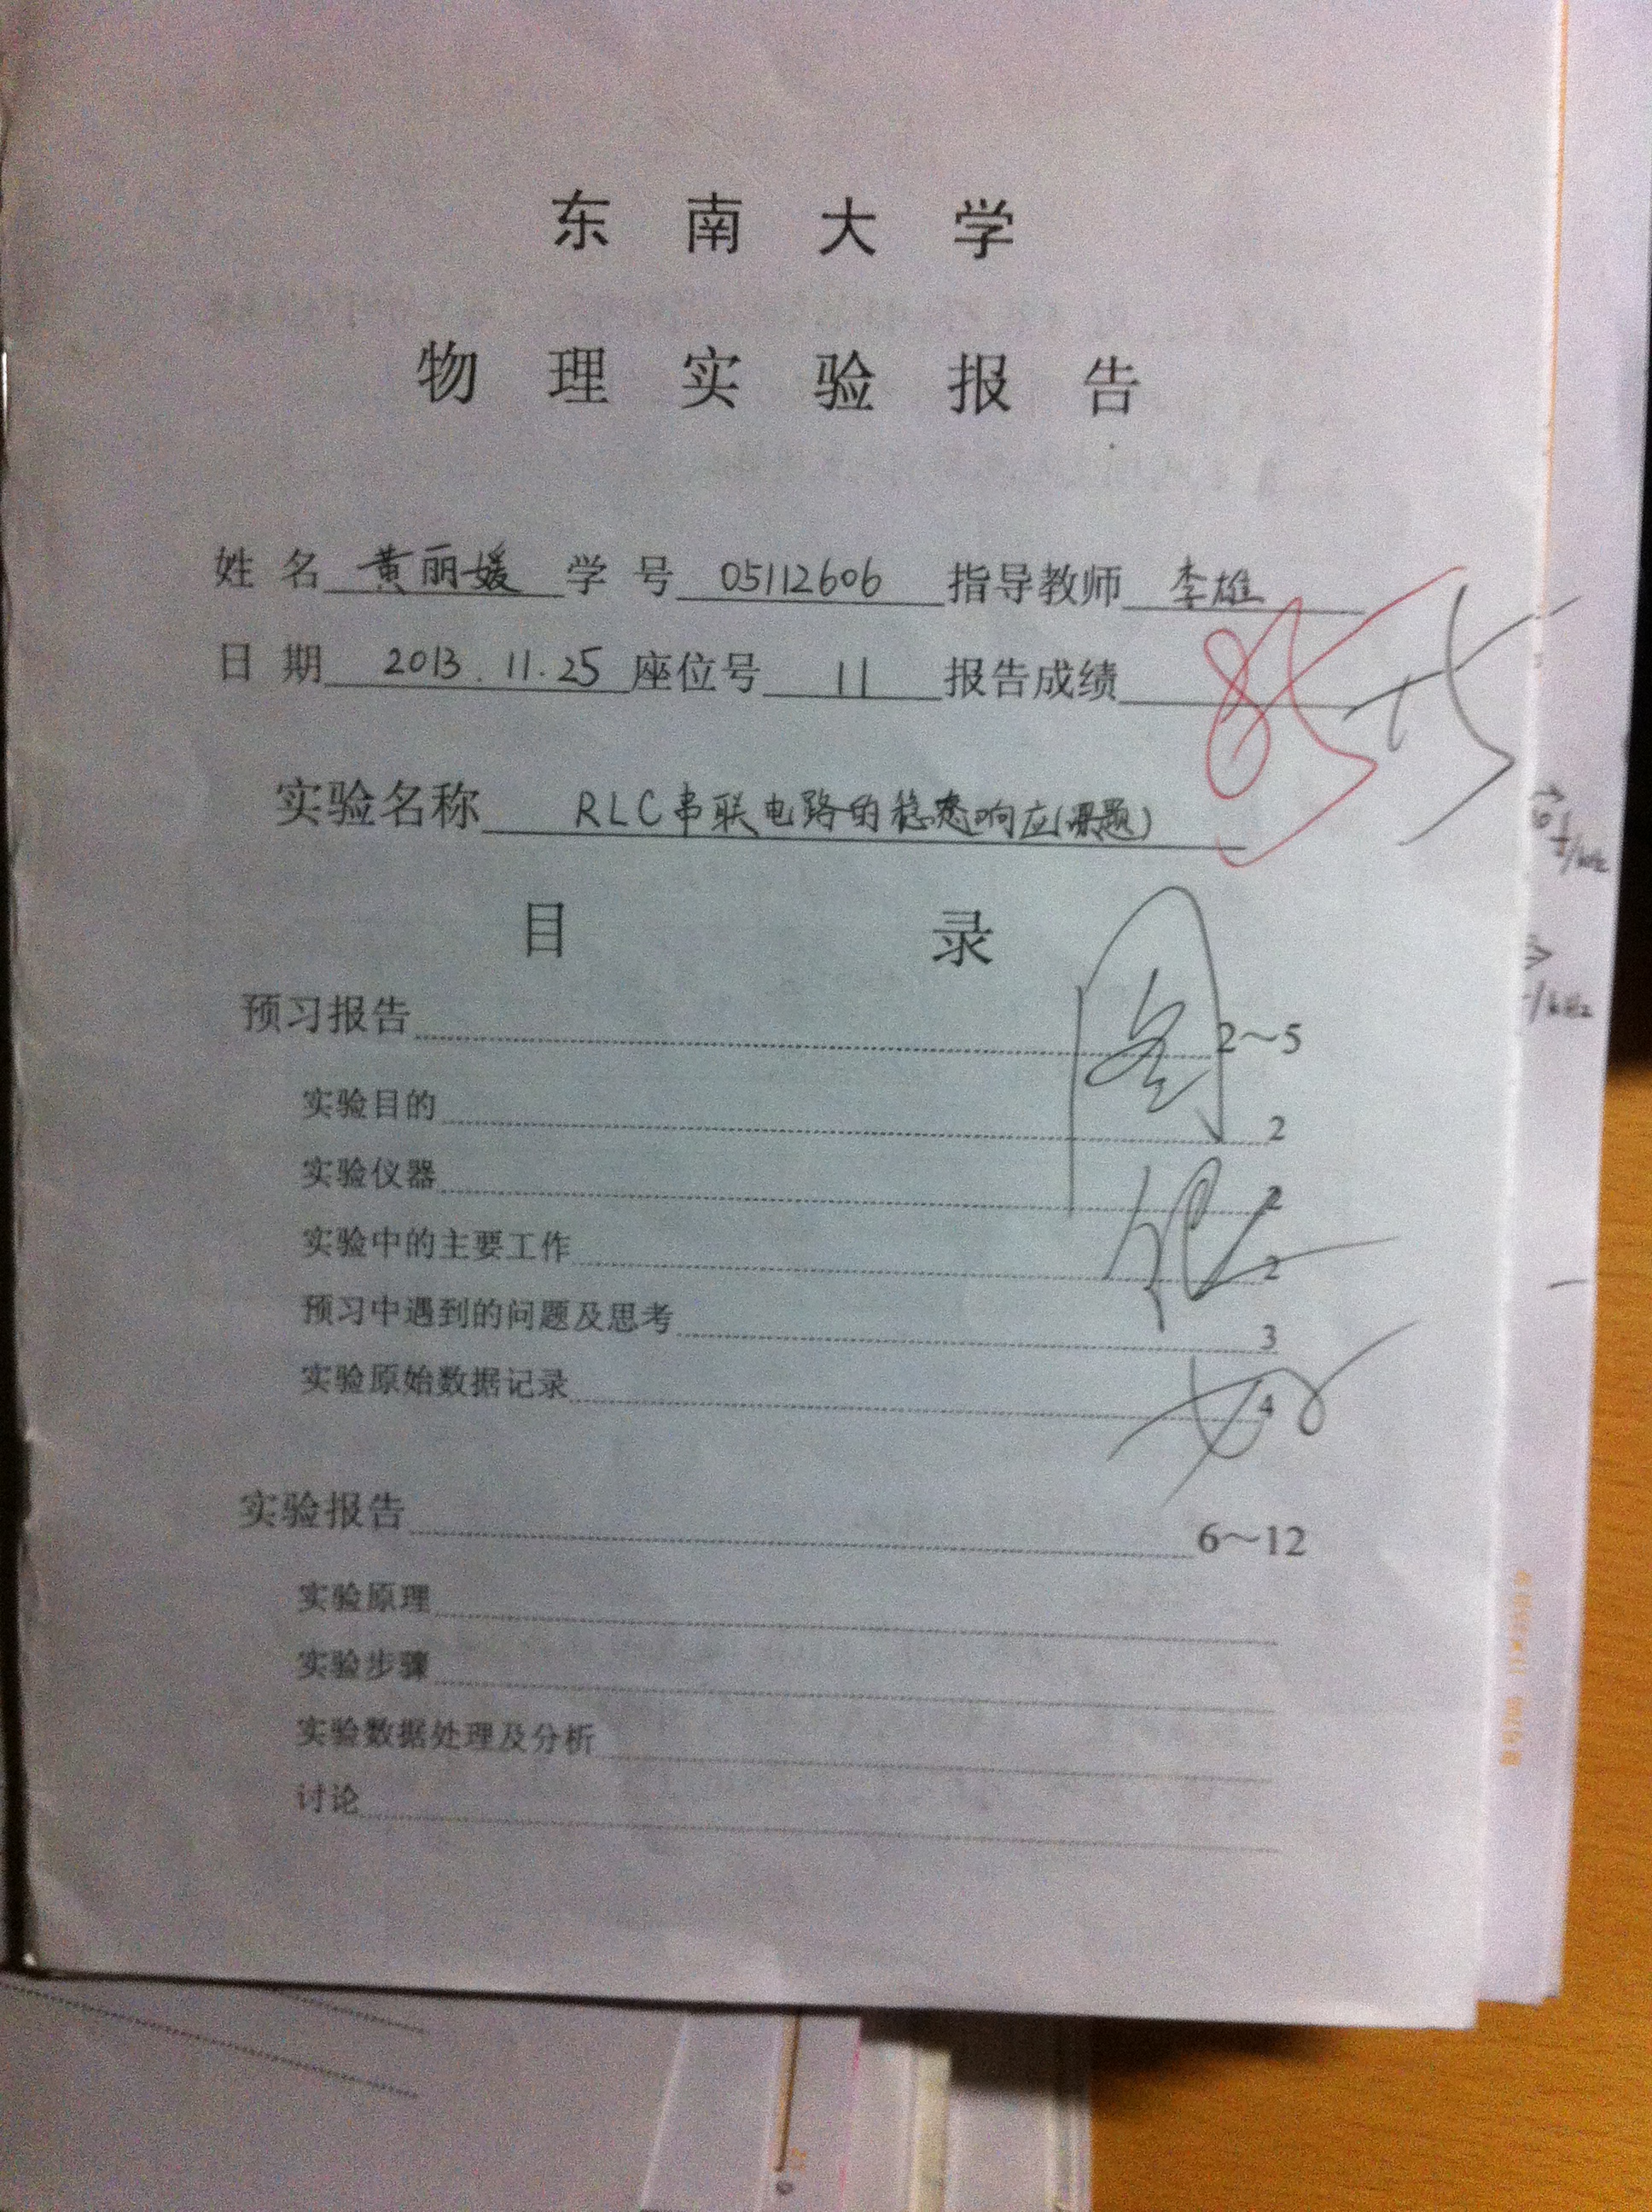 东南大学
物理实验报告
姓名 黄丽媛 学号 05112606 指导教师 李雄
日期 2013.11.25 座位号 11 报告成绩 85+5
实验名称 RLC串联电路的稳态响应(课题)
目录
预习报告 2~5
实验目的 2
实验仪器 2
实验中的主要工作 2
预习中遇到的问题及思考 3
实验原始数据记录 4
实验报告 6~12
实验原理
实验步骤
实验数据处理及分析
讨论